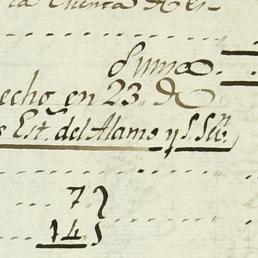 la Cuenta de
Suma
echo en 23 de
Est. del Alamo y S. Sn.
7
14